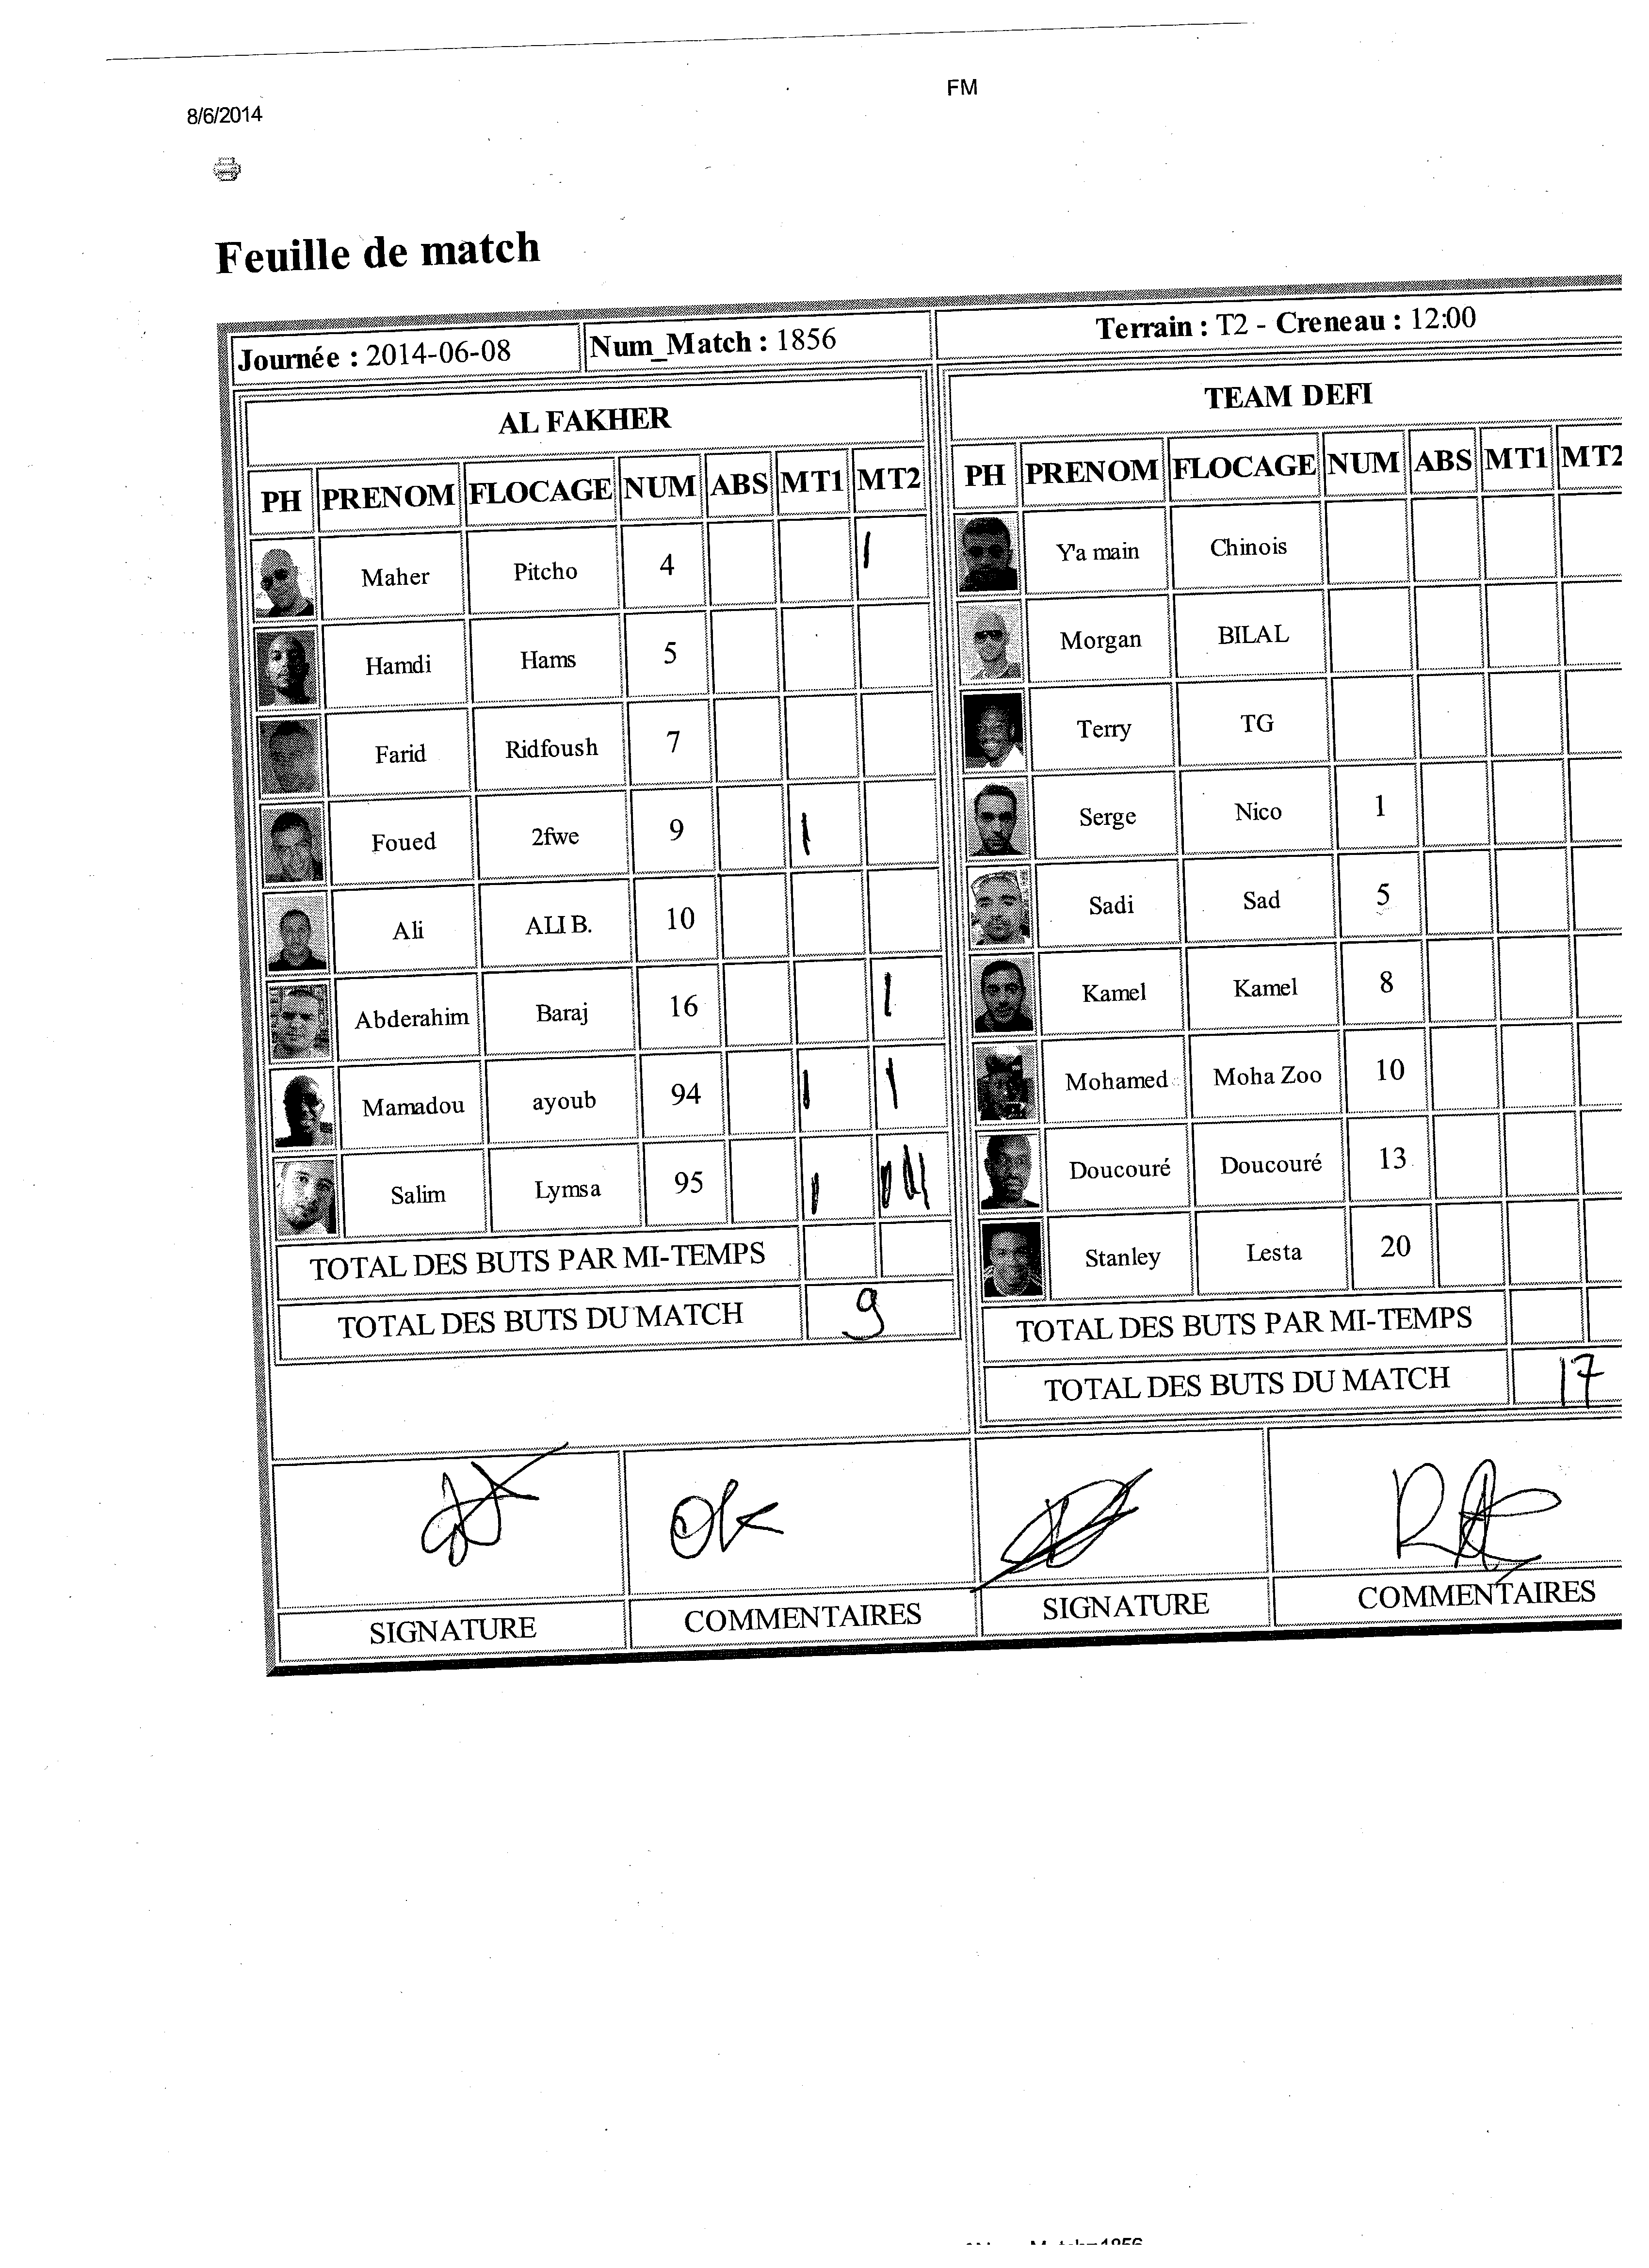 FM
8/6/2014
Feuille de match
Journée : 2014-06-08 Num_Match : 1856 Terrain : T2 - Creneau : 12:00
AL FAKHER
PH PRENOM FLOCAGE NUM ABS MT1 MT2
Maher Pitcho 4 I
Hamdi Hams 5
Farid Ridfoush 7
Foued 2fwe 9 I
Ali ALI B. 10
Abderahim Baraj 16 I
Mamadou ayoub 94 I I
Salim Lymsa 95
TOTAL DES BUTS PAR MI-TEMPS
TOTAL DES BUTS DU MATCH 9
TEAM DEFI
PH PRENOM FLOCAGE NUM ABS MT1 MT2
Y'a main Chinois
Morgan BILAL
Terry TG
Serge Nico 1
Sadi Sad 5
Kamel Kamel 8
Mohamed Moha Zoo 10
Doucouré Doucouré 13
Stanley Lesta 20
TOTAL DES BUTS PAR MI-TEMPS
TOTAL DES BUTS DU MATCH 17
OK
SIGNATURE COMMENTAIRES SIGNATURE COMMENTAIRES